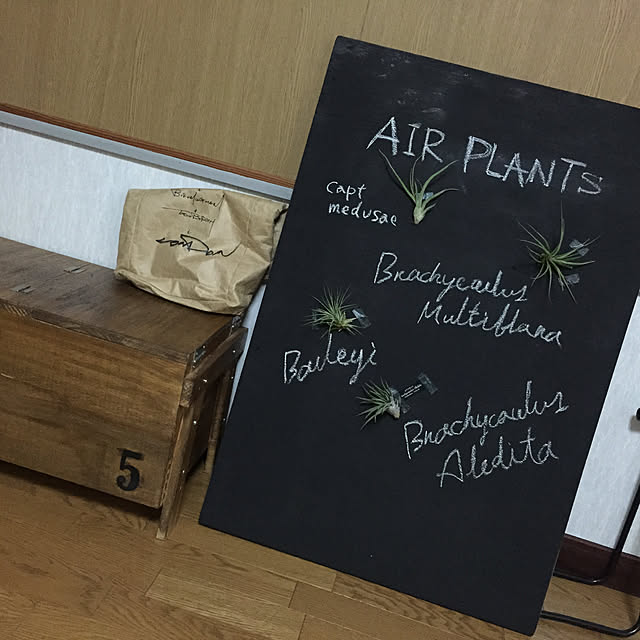 AIR PLANTS
capt
medusae
Brachycaulus
Multiblana
Baileyi
Brachycaulus
Aledita
5